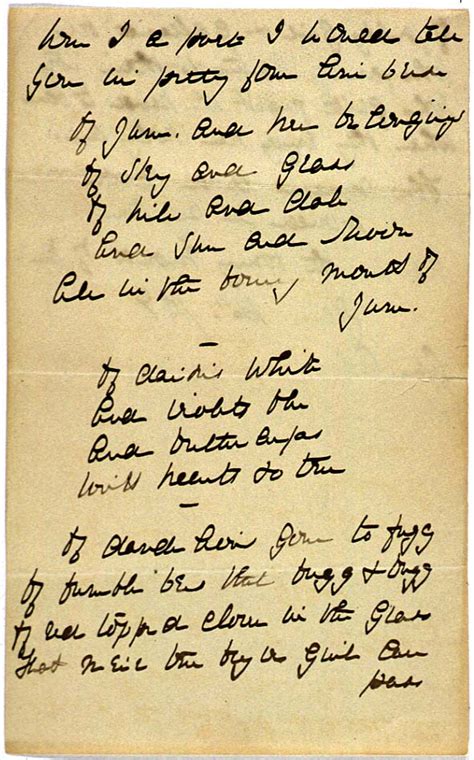 Were I a poet I would tell
You in pretty four line verse
of June. and her belongings
of Sky and Grass
of hill and dale
and Sun and Moon
all in the bonny month of
June.
of daisies white
and violets blue
and buttercups
with hearts so true
of dandelion gone to fuzz
of bumble bees that buzz & buzz
of red topped clover in the Grass
that none but
can
pass